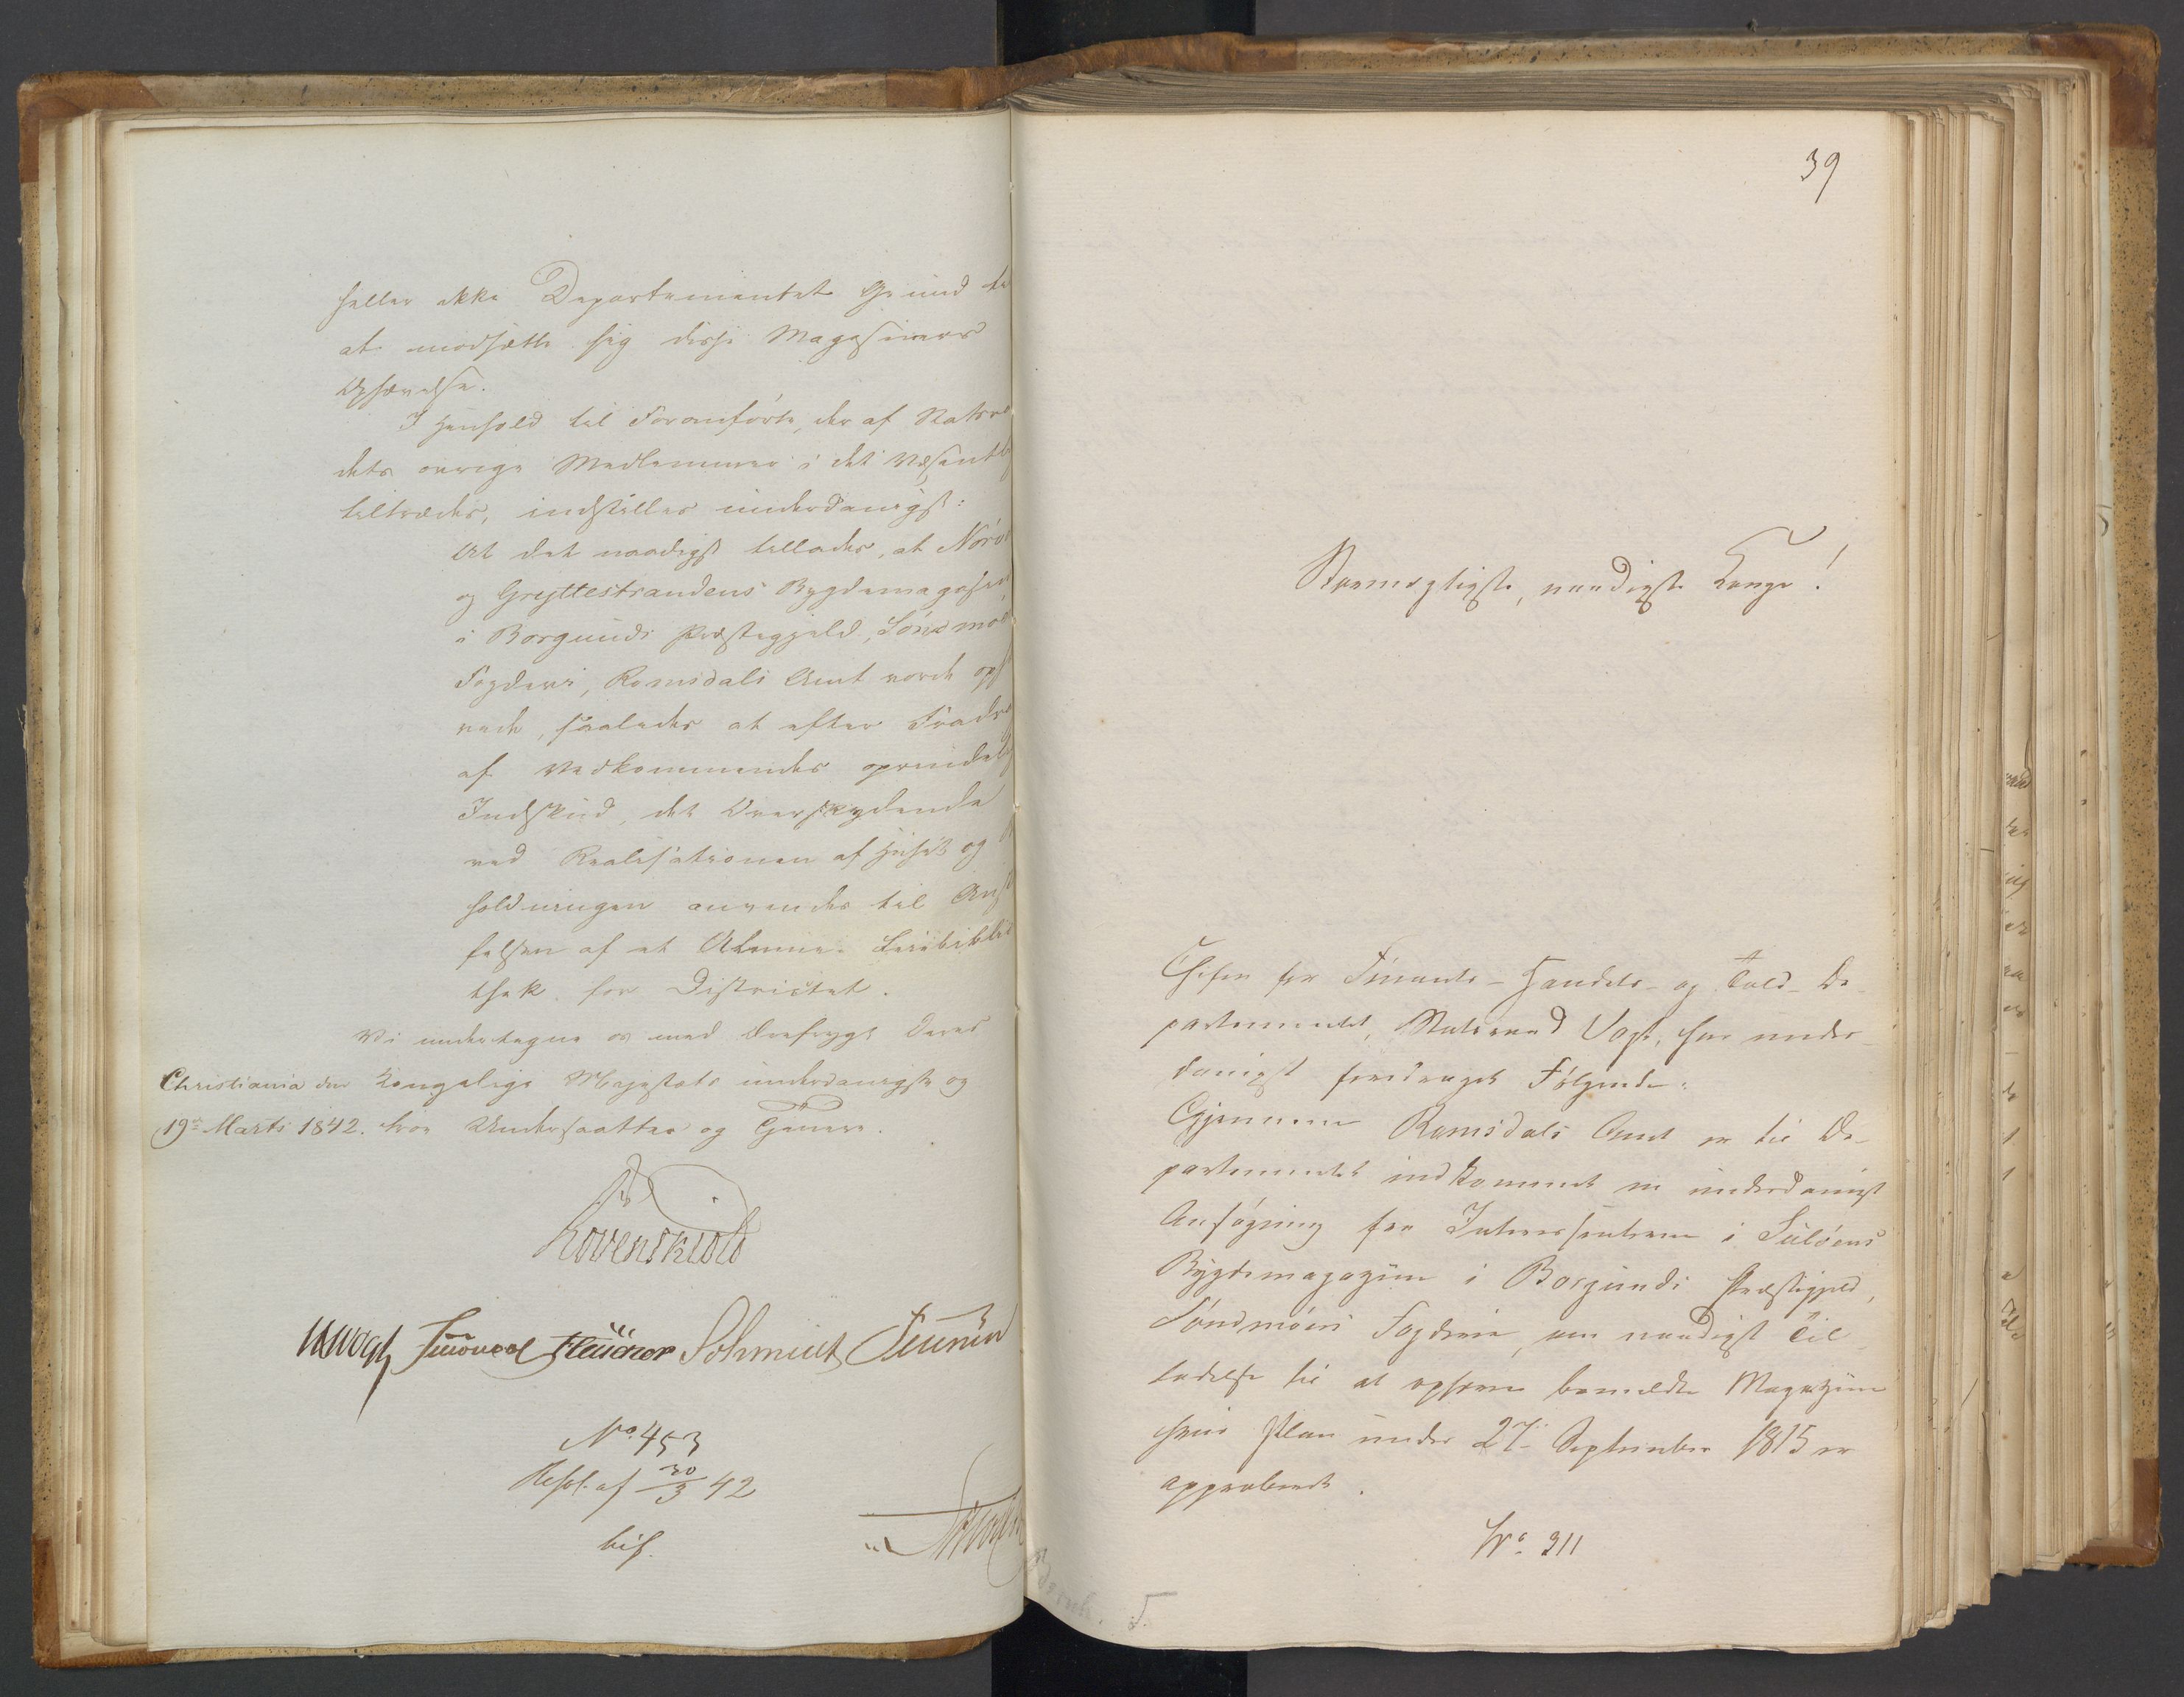 heller ikke Departementet Grund til
at modsætte sig disse Magasiners
Ophævelse.
I Henhold til Foranførte, der af Statsraa
dets øvrige Medlemmer i det Væsentlige
tiltrædes, indstilles underdanigst:
At det naadigst tillades, at Nørve
og Grøttestrandens Bygdemagasin,
i Borgunds Præstegjeld, Søndmørs
Fogderi, Romsdals Amt vorde ophæ
vede, saaledes at efter Fradrag
af Vedkommendes oprindelige
Indskud, det Overskydende
ved Realisationen af Huset og
holdningen anvendes til Anskaf
felsen af et Almue- Læsebiblio
thek for Districtet.
Vi undertegne os med Ærefrygt Deres
Christiania den Kongelige Majestæts underdanigste og
19de Marts 1842. troe Undersaatter og Tjenere.
Løvenskiold
Vogt Schmidt
No. 453
Resol. af 30/3 42
bif.
39
Stormægtigste, naadigste Konge!
Chefen for Finants- Handels- og Told-De-
partementet, Statsraad Vogt, har under-
danigst foredraget Følgende:
Gjennem Romsdals Amt er til De-
partementet indkommet en underdanigst
Ansøgning fra Interessenterne i Suløens
Bygdemagazin i Borgunds Præstegjeld,
Søndmørs Fogderie, om naadigst Til-
ladelse til at ophæve bemeldte Magazin
hvis Plan under 27de September 1815 er
approberet.
No. 311